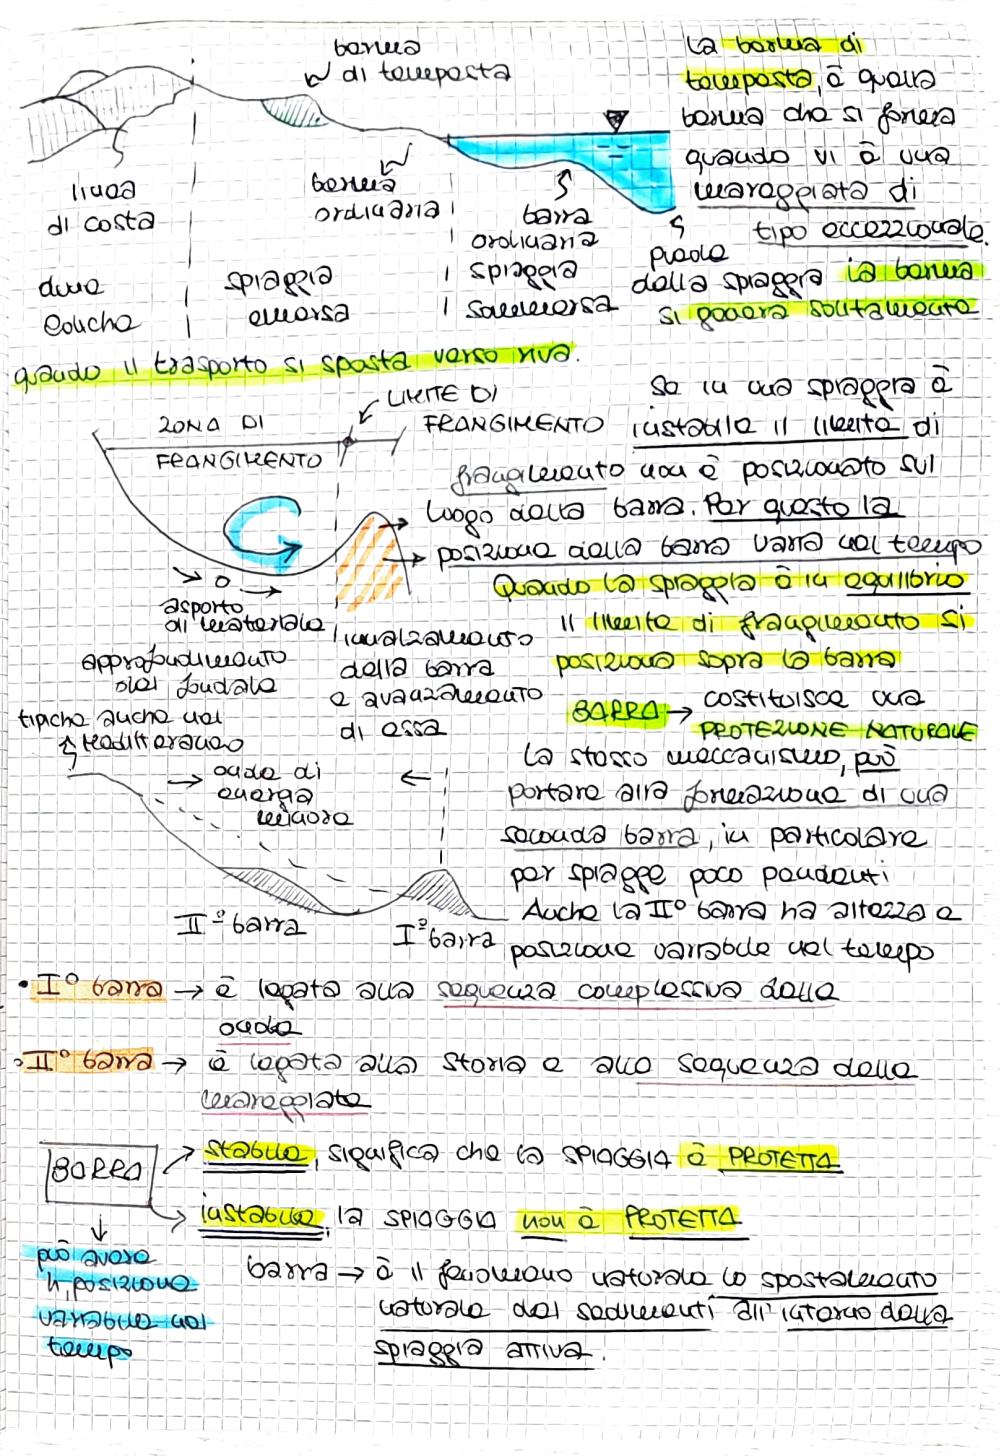 berma
di tempesta
La berma di
tempesta, è quella
berma che si forma
quando vi è una
mareggiata di
tipo eccezzionale.
linea
di costa
berma
ordinaria
barra
ordinaria
piede
della spiaggia
duna
eolicha
spiaggia
emersa
spiaggia
sommersa
La berma
si genera solitamente
quando il trasporto si sposta verso riva.
LIMITE DI
FRANGIMENTO
ZONA DI
FRANGIMENTO
Se in una spiaggia è
instabile il limite di
frangimento non è posizionato sul
luogo della barra. Per questo la
posizione della barra varra nel tempo
Quando la spiaggia è in equilibrio
il limite di frangimento si
posiziona sopra la barra
asporto
di materiale
approfondimento
del fondale
innalzamento
della barra
e avanzamento
di essa
BARRA → costituisce una
PROTEZIONE NATURALE
tipiche anche nel
mediterraneo
onde di
energia
minore
Lo stesso meccanismo, può
portare alla formazione di una
seconda barra, in particolare
per spiagge poco pendenti
Anche la IIº barra ha altezza e
posizione variabile nel tempo
IIº barra
Iº barra
• Iº barra → è legata alla sequenza complessiva delle
onde
• IIº barra → è legata alla storia e alla sequenza delle
mareggiate
BARRA
stabile, significa che la SPIAGGIA è PROTETTA
instabile, la SPIAGGIA non è PROTETTA
può avere
h, posizione
variabile nel
tempo
barra → è il fenomeno naturale lo spostamento
naturale dei sedimenti all'interno della
spiaggia attiva.